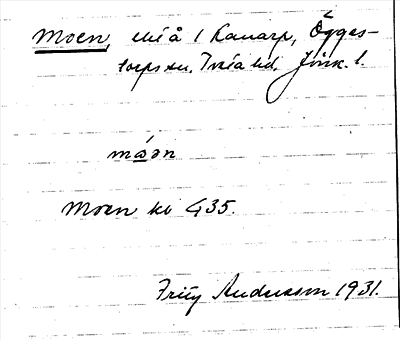 Moen, elié å i Kanarp, Ögges-
torps sn. Tveta hd. Jönk. l.
måən
Moen kv 435.
Fritz Andersson 1931.